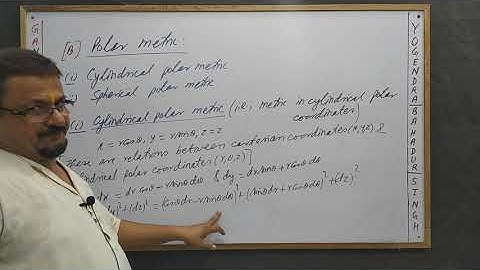 [B] Polar metric:
(i) Cylindrical polar metric
(ii) Spherical polar metric
(i) Cylindrical polar metric (i.e., metric in cylindrical polar
coordinates)
x = r cosθ, y = r sinθ, z = z
These are relations between cartesian coordinates (x, y, z) &
cylindrical polar coordinates (r, θ, z)
dx = dr cosθ - r sinθ dθ & dy = dr sinθ + r cosθ dθ
)²+(dz)² = (cosθ dr - r sinθ dθ)² + (sinθ dr + r cosθ dθ)² + (dz)²
YOGENDRA BAHADUR SINGH